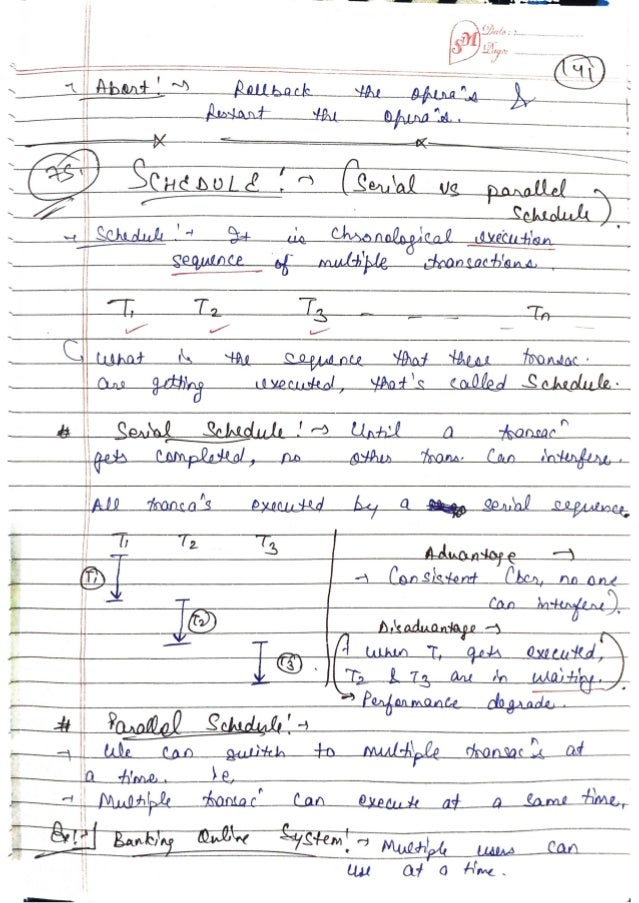 SM Date :
Page
141
→ Abort! → Rollback the opera^n s &
Restart the opera^n s.
75. SCHEDULE! → (Serial vs parallel
Schedule).
→ Schedule! → It is chronological execution
sequence of multiple transactions.
T1 T2 T3 - - - Tn
what is the sequence that these transac.
are getting executed, that's called Schedule.
# Serial Schedule! → Until a transac^n
gets completed, no other trans. can interfere.
All transa^n s executed by a serial sequence.
T1 T2 T3
T1
T2
T3
Advantage →
→ Consistent (bcz, no one
can interfere).
Disadvantage →
→ when T1 gets executed,
T2 & T3 are in waiting.
→ Performance degrade.
# Parallel Schedule! →
→ We can switch to multiple transac^n s at
a time. ie,
→ Multiple transac^n can execute at a same time,
Ex!→ Banking Online System! → Multiple users can
use at a time.